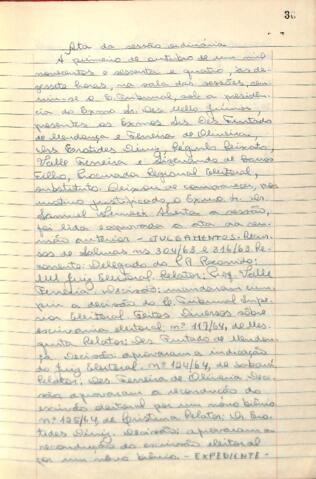 36
Ata da sessão ordinária
A primeiro de outubro de um mil
novecentos e sessenta e quatro, às de-
zessete horas, na sala das sessões, reu-
niu-se o E. Tribunal, sob a presidên-
cia do Exmo Sr. Des Mello Júnior
presentes os Exmos Srs. Des Furtado
de Mendonça e Ferreira de Oliveira,
Drs Eratides Diniz, Régulo Peixoto,
Valle Ferreira e
Filho, Procurador Regional Eleitoral,
substituto. Deixou de comparecer, por
motivo justificado, o Exmo Sr. Dr.
Samuel Aberta a sessão,
foi lida e aprovada a ata da reu-
nião anterior - JULGAMENTOS: Recur-
sos de Salinas ns 304/63 e 316/63. Re-
corrente: Delegado do P.R. Recorrido:
MM. Juiz Eleitoral. Relator: Valle
Ferreira. Decisão: mandaram cum-
prir a decisão do E. Tribunal Supe-
rior Eleitoral. Feitos Diversos sobre
escrivania eleitoral: nº 117/64, de Mes-
quita Relator: Des Furtado de Mendon-
ça. Decisão: aprovaram a indicação
do Juiz Eleitoral. nº 124/64, de Sabará
Relator: Des Ferreira de Oliveira Deci-
são: aprovaram a recondução do
escrivão eleitoral por um novo biênio.
nº 125/64, de Cristina Relator: Dr. Era-
tides Diniz. Decisão: aprovaram a
recondução do escrivão eleitoral
por um novo biênio. - EXPEDIENTE -